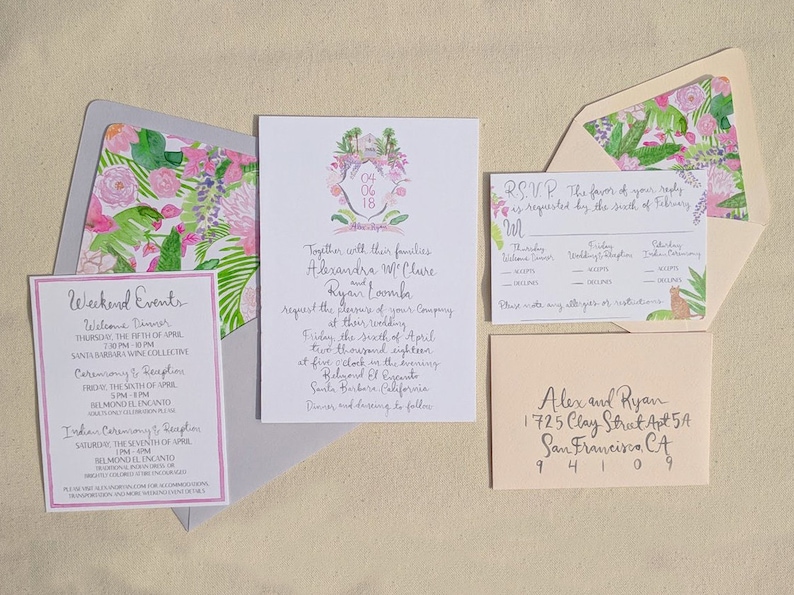 Weekend Events
Welcome Dinner
THURSDAY, THE FIFTH OF APRIL
7:30 PM - 10 PM
SANTA BARBARA WINE COLLECTIVE
Ceremony & Reception
FRIDAY, THE SIXTH OF APRIL
5 PM - 11 PM
BELMOND EL ENCANTO
ADULTS ONLY CELEBRATION PLEASE
Indian Ceremony & Reception
SATURDAY, THE SEVENTH OF APRIL
1 PM - 4PM
BELMOND EL ENCANTO
TRADITIONAL INDIAN DRESS OR
BRIGHTLY COLORED ATTIRE ENCOURAGED
PLEASE VISIT ALEXANDRYAN.COM FOR ACCOMMODATIONS,
TRANSPORTATION AND MORE WEEKEND EVENT DETAILS
04
06
18
Alex & Ryan
Together with their families
Alexandra McClure
and
Ryan Loomba
request the pleasure of your company
at their wedding
Friday, the sixth of April
two thousand eighteen
at five o'clock in the evening
Belmond El Encanto
Santa Barbara, California
Dinner and dancing to follow
R.S.V.P. The favor of your reply
is requested by the sixth of February
M
Thursday Friday Saturday
Welcome Dinner Wedding & Reception Indian Ceremony
ACCEPTS ACCEPTS ACCEPTS
DECLINES DECLINES DECLINES
Please note any allergies or restrictions
Alex and Ryan
1725 Clay Street Apt 5A
San Francisco, CA
94109